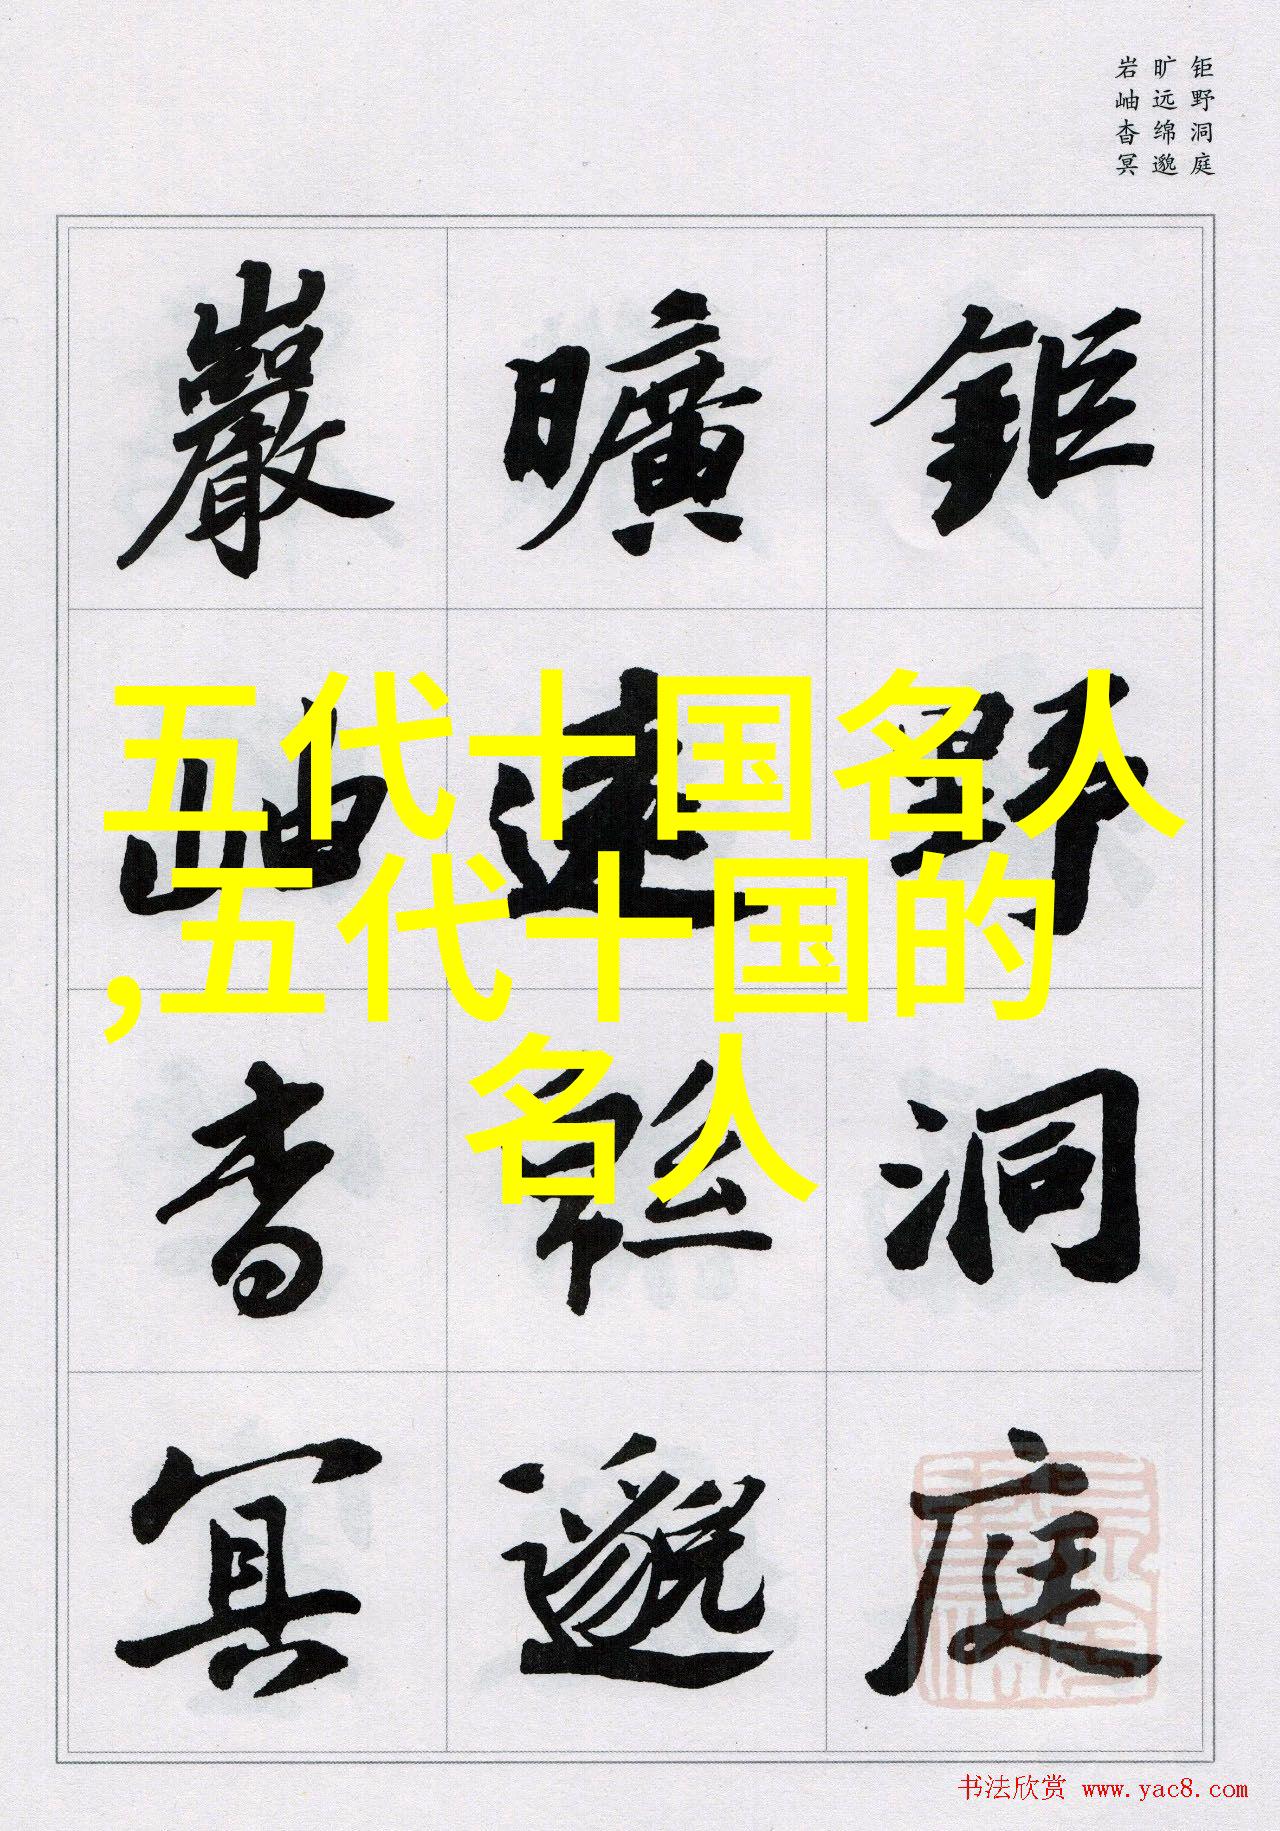 钜野洞庭
旷远绵邈
岩岫杳冥
鉅野洞庭
曠遠緜邈
巖岫杳冥
五代十国名人
,五代十国的
名人
书法欣赏 www.yac8.com